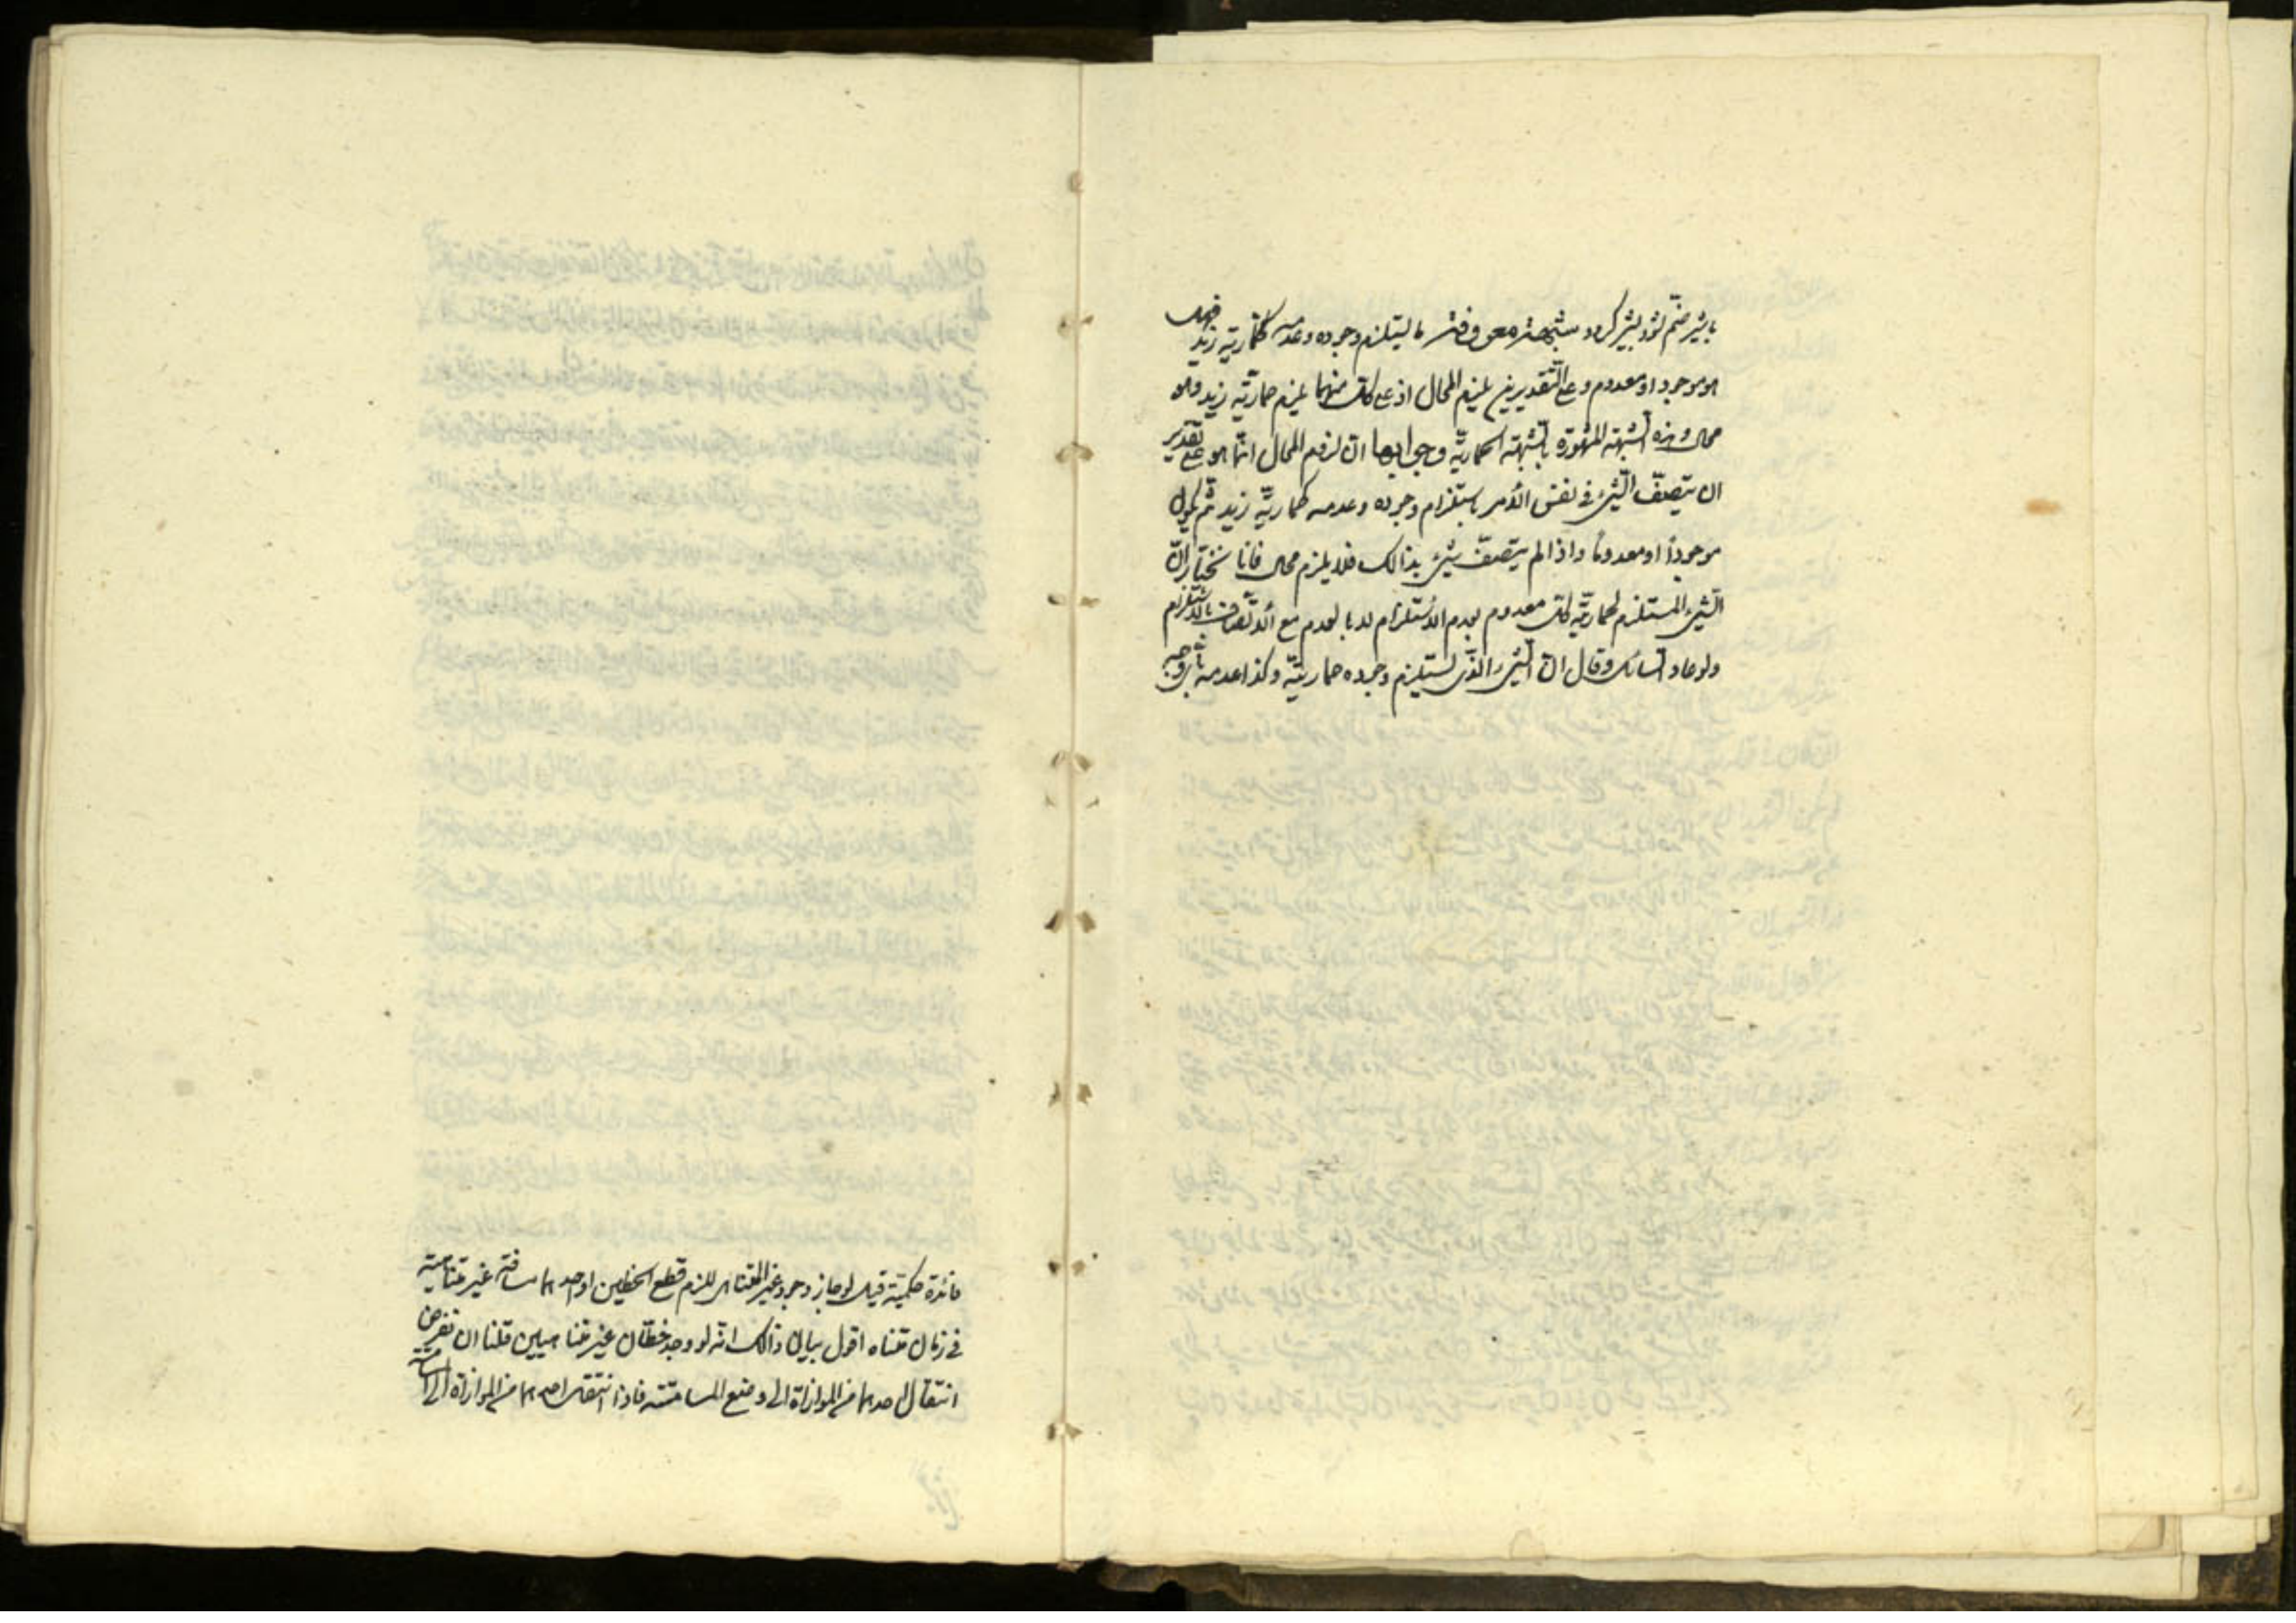 شبهة معروفة ما يستلزم وجوده وعدمه حمارية زيد فهل
هو موجود او معدوم وعلى التقديرين يلزم المحال اذ على كل منهما يلزم حمارية زيد وهو
محال وهذه الشبهة المشهورة بالشبهة الحمارية وجوابها ان لزوم المحال انما هو على تقدير
ان يتصف الشئ فى نفس الأمر باستلزام وجوده وعدمه حمارية زيد ثم يكون
موجوداً او معدوماً واذا لم يتصف شئ بذالك فلا يلزم محال فانا نختار ان
الشئ المستلزم لحمارية كل معدوم بعدم الاستلزام لا بالعدم مع الاتصاف بالاستلزام
ولو عاد السائل وقال ان الشئ الذى يستلزم وجوده حمارية وكذا عدمه باى وجه
فائدة حكمية قيل لو جاز وجود غير المتناهى للزم قطع الخطين او احدهما مسافة غير متناهية
فى زمان متناه اقول بيان ذالك انه لو وجد خطان غير متناهيين فلنا ان نفرض
انتقال احدهما من الموازاة الى وضع المسامتة فاذا انتقل احدهما من الموازاة الى المسامتة